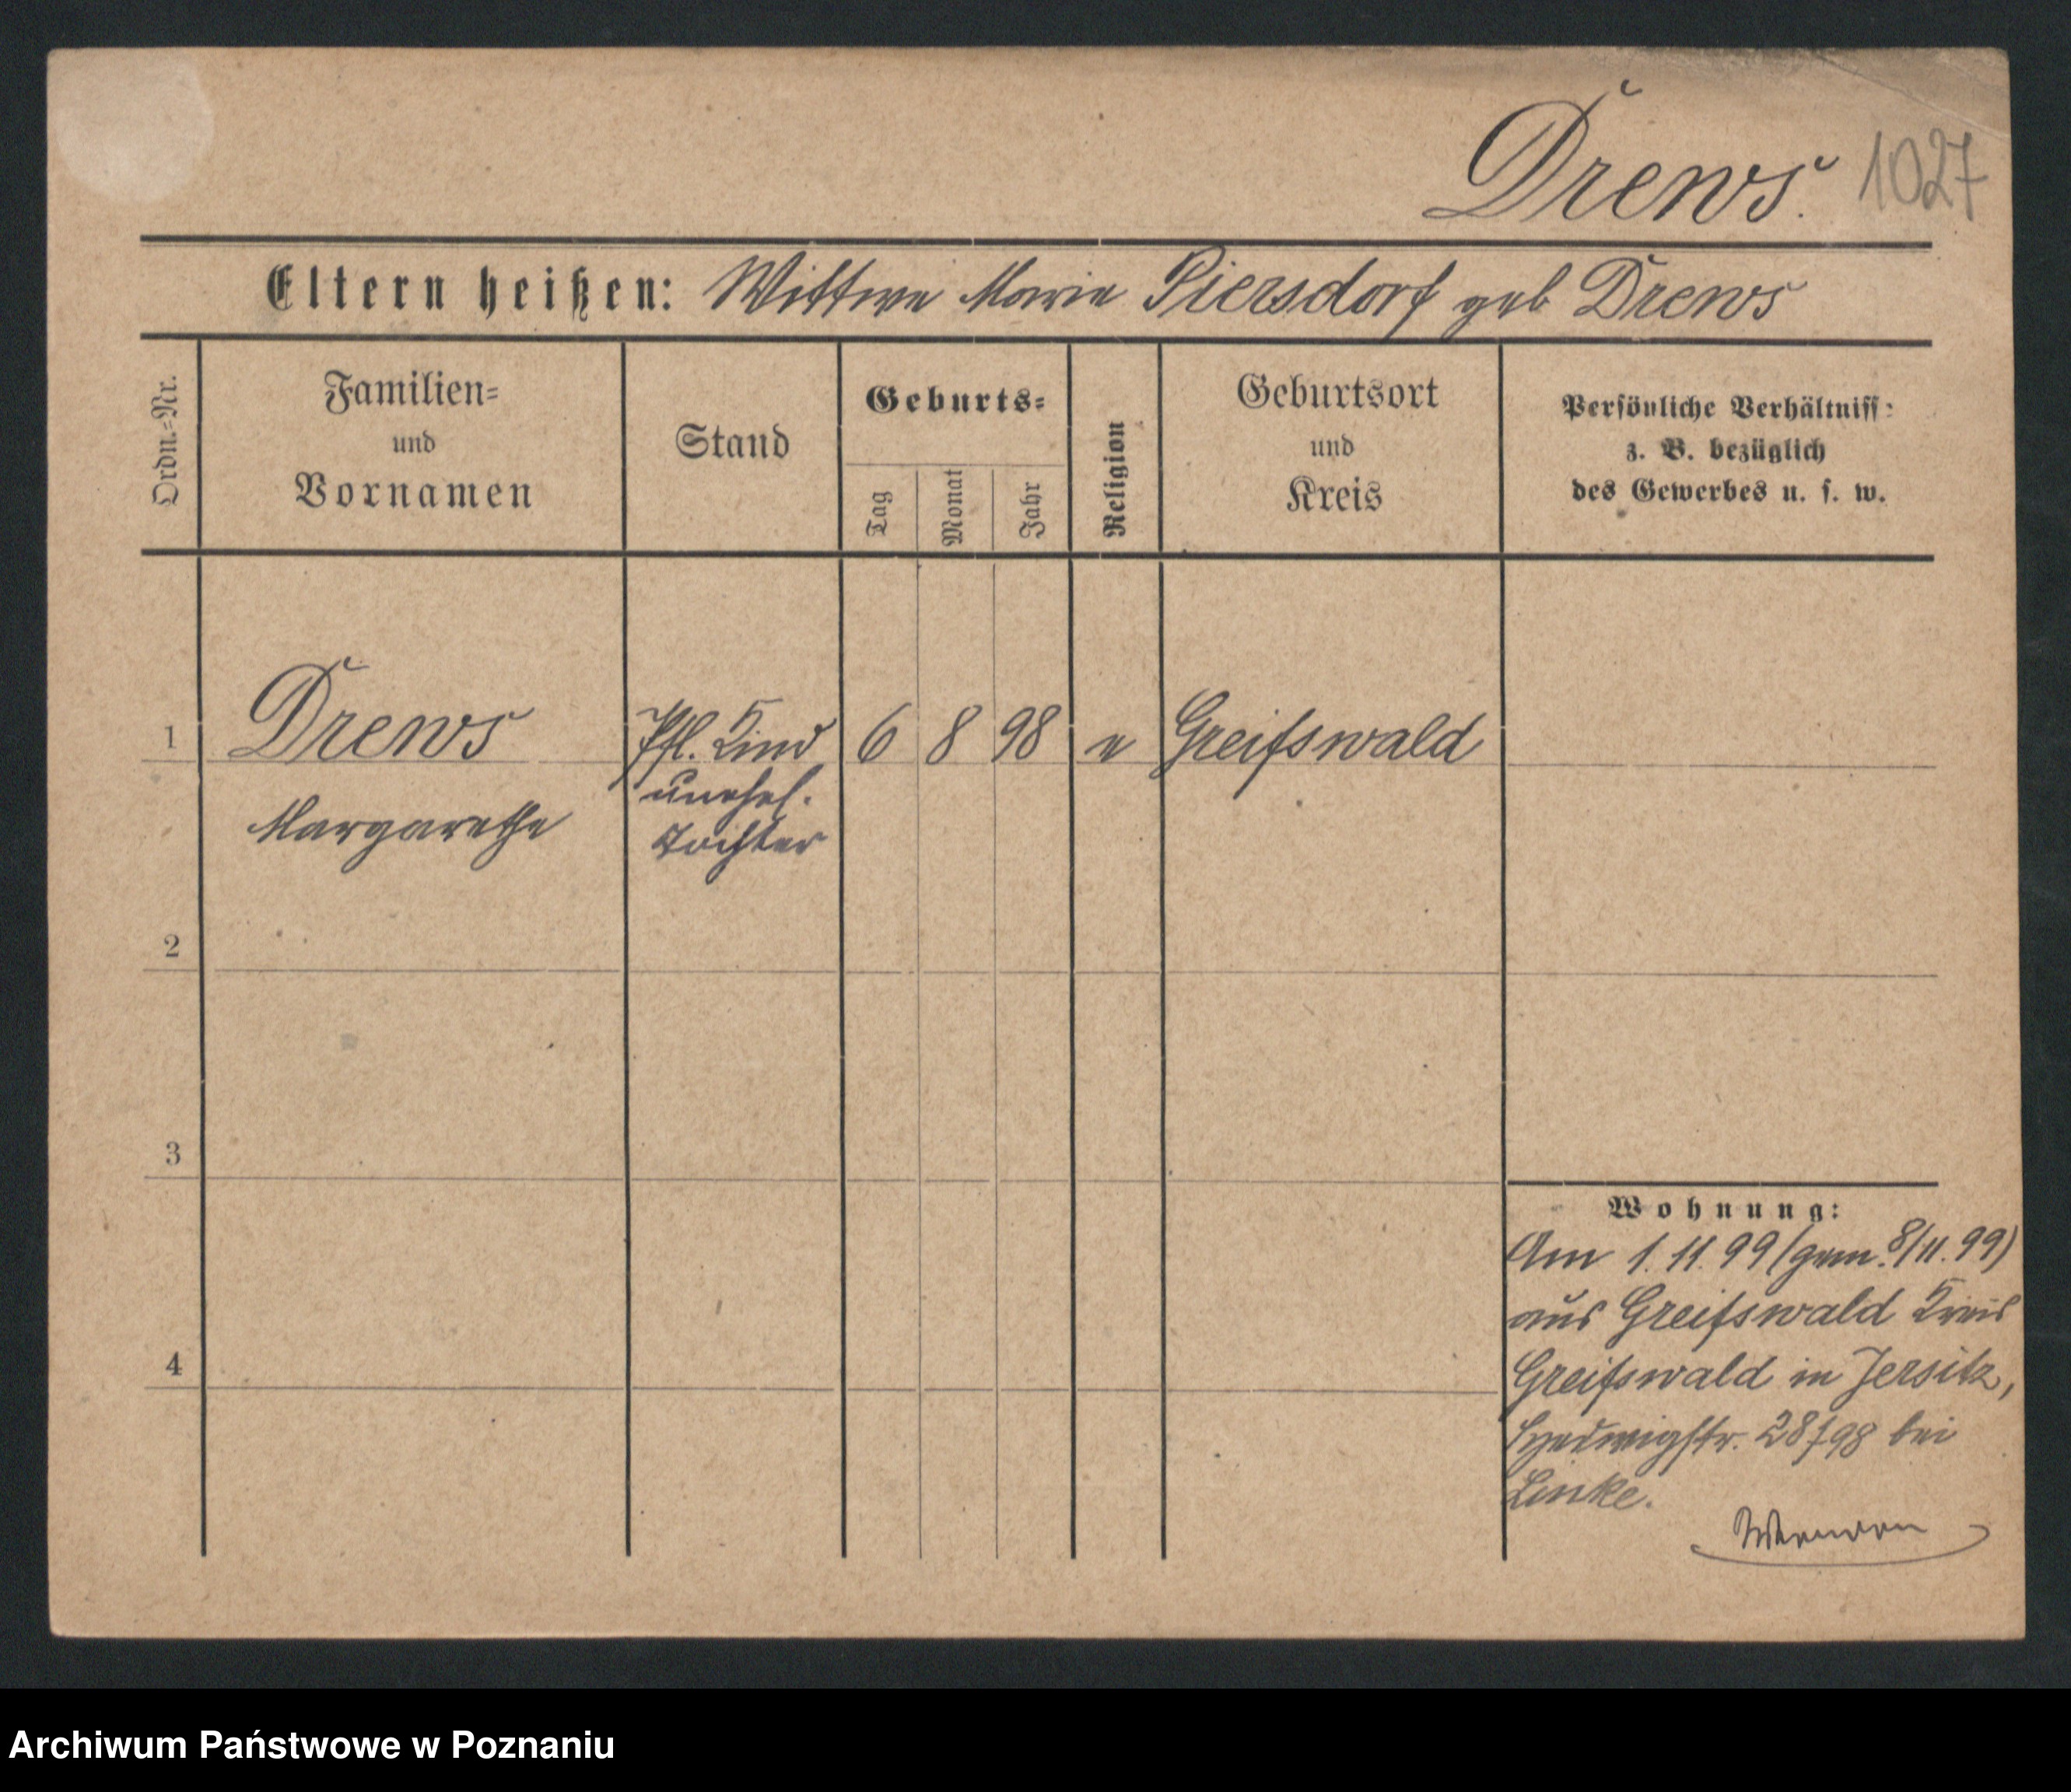 Drews. 1027
Eltern heißen: Wittwe Marie Piersdorf geb Drews
Ordn.=Nr.
Familien=
und
Vornamen
Stand
Geburts=
Tag
Monat
Jahr
Religion
Geburtsort
und
Kreis
Persönliche Verhältniss:
z. B. bezüglich
des Gewerbes u. s. w.
1 Drews Pfl. Kind 6 8 98 e Greifswald
unehel.
Margarethe Tochter
2
3
4
Wohnung:
Am 1. 11. 99 (gem. 8/11. 99)
aus Greifswald Kreis
Greifswald in Jersitz,
Hedwigstr. 28/98 bei
Linke.
Archiwum Państwowe w Poznaniu